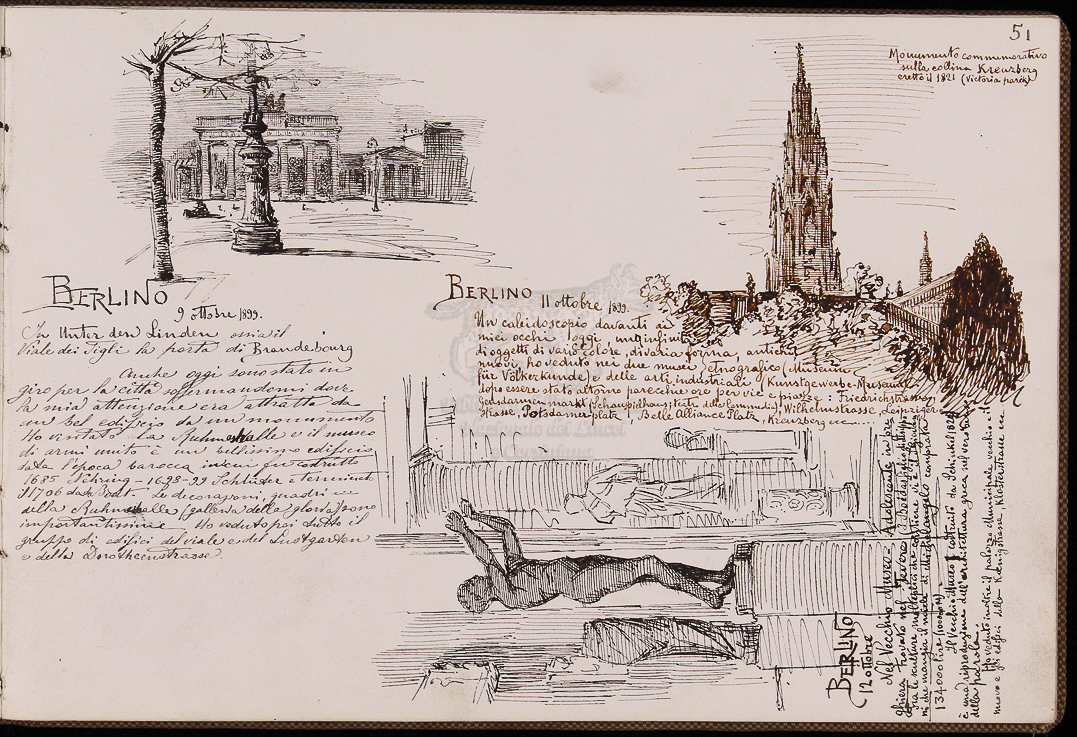 51
Monumento commemorativo
sulla collina Kreuzberg
eretto il 1821 (Victoria park)
BERLINO
9 ottobre 1899.
In Unter den Linden ossia il
Viale dei Tigli la porta di Brandebourg
Anche oggi sono stato in
giro per la città soffermandomi dove
la mia attenzione era attratta da
un bel edificio da un monumento
Ho visitato la Ruhmeshalle e il museo
di armi unito è un bellissimo edificio
data l'epoca barocca in cui fu costrutto
1685 Nehring - 1698-99 Schlüter e terminat
il 1706 da de Bodt. Le decorazioni, quadri ecc
della Ruhmeshalle (galleria della gloria) sono
importantissime - Ho veduto poi tutto il
gruppo di edifici del viale e del Lustgarten
e della Dorotheenstrasse.
BERLINO 11 ottobre 1899.
Un caleidoscopio davanti ai
miei occhi oggi un'infinità
di oggetti di vario colore, di varia forma, antichi,
nuovi, ho veduto nei due musei etnografico (Museum
für Völkerkunde) e delle arti industriali (Kunstgewerbe-Museum)
dopo essere stato attorno parecchie ore per vie e piazze: Friedrichstrasse,
Gendarmenmarkt (Schauspielhaus teatro della Commedia), Wilhelmstrasse, Leipziger-
strasse, Potsdamerplatz, Belle Alliance Platz,
Kreuzberg ecc....
BERLINO
12 ottobre
Nel Vecchio Museo - Adolescente in pre
ghiera trovato nel Tevere
fra le sculture molteplici che contiene vi è il
ni che mangia il miele di Michelangelo comprato
134000 lire (100000 m) -
Il Vecchio Museo costruito da Schinkel 1824
è una riproduzione dell'architettura greca nel vero senso
della parola.
Ho veduto inoltre il palazzo municipale vecchio e il
nuovo e gli edifici della Kœnigstrasse, Klosterstrasse ecc